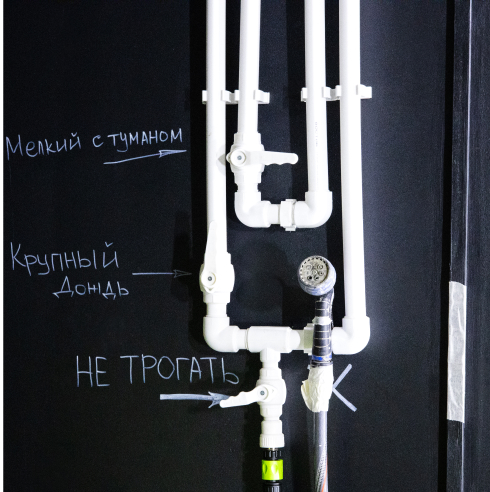 Мелкий с туманом
Крупный
Дождь
НЕ ТРОГАТЬ